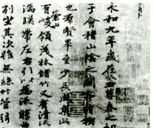 永和九年歲在癸丑暮春之初
于會稽山陰之蘭亭脩稧
也羣賢畢至少長咸集此地
有崇山峻領茂林脩竹又有清流
湍暎帶左右引以為流觴曲
列坐其次雖無絲竹管弦